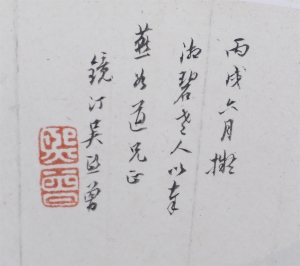 丙戌六月擬
湘碧老人以奉
燕如道兄正
鏡汀吴熙曾
熙曾